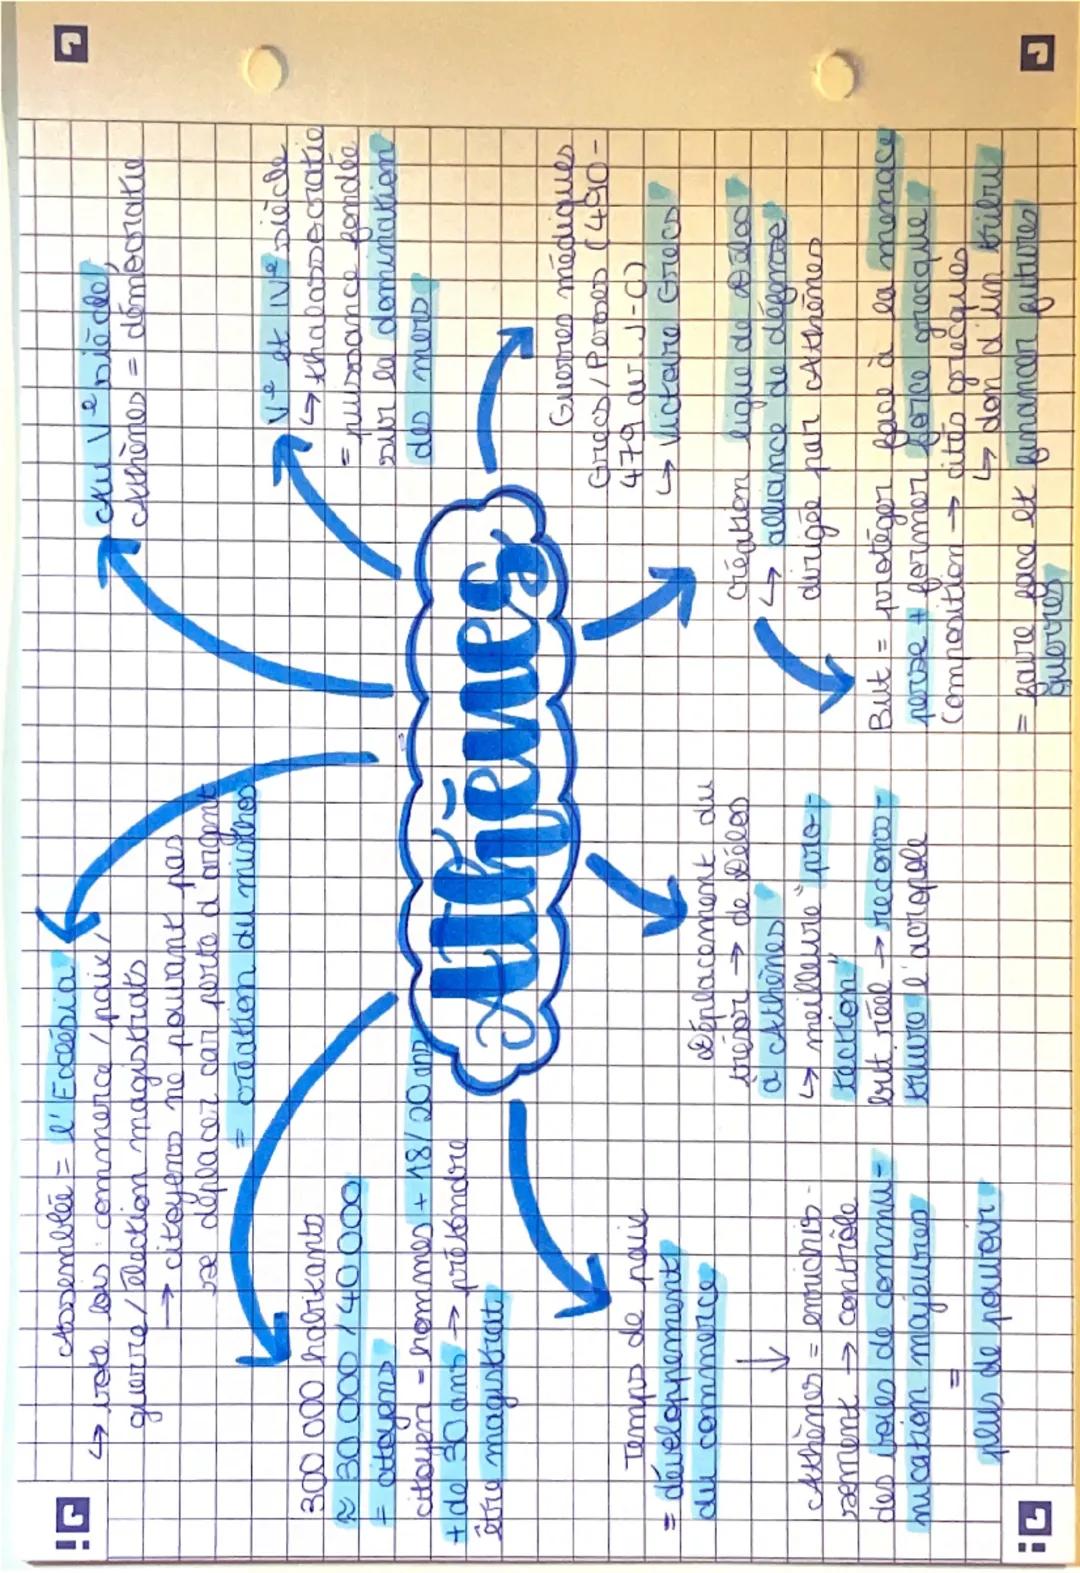 Athènes
Assemblée = l'Ecclésia
↳ vote lois commerce / paix /
guerre / élection magistrats
→ citoyens ne pouvant pas
se déplacer car perte d'argent
= création du misthos
Au Ve siècle,
Athènes = démocratie
Ve et IVe siècle
↳ thalassocratie
= puissance fondée
sur la domination
des mers
300 000 habitants
≈ 30 000 / 40 000
= citoyens
citoyen = hommes + 18/20 ans
+ de 30 ans → prétendre
être magistrat
Temps de paix
= développement
du commerce
↓
Athènes = enrichis-
sement → contrôle
des voies de commu-
nication majeures
=
plus de pouvoir
Déplacement du
trésor → de Délos
à Athènes
↳ meilleure "pro-
tection"
but réel → recons-
truire l'acropole
Guerres médiques
Grecs / Perses (490-
479 av. J-C)
↳ victoire Grecs
Création ligue de Délos
↳ alliance de défense
dirigée par Athènes
But = protéger face à la menace
perse + former force grecque
Composition → cités grecques
↳ don d'un tribu
= faire face et financer futures
guerres